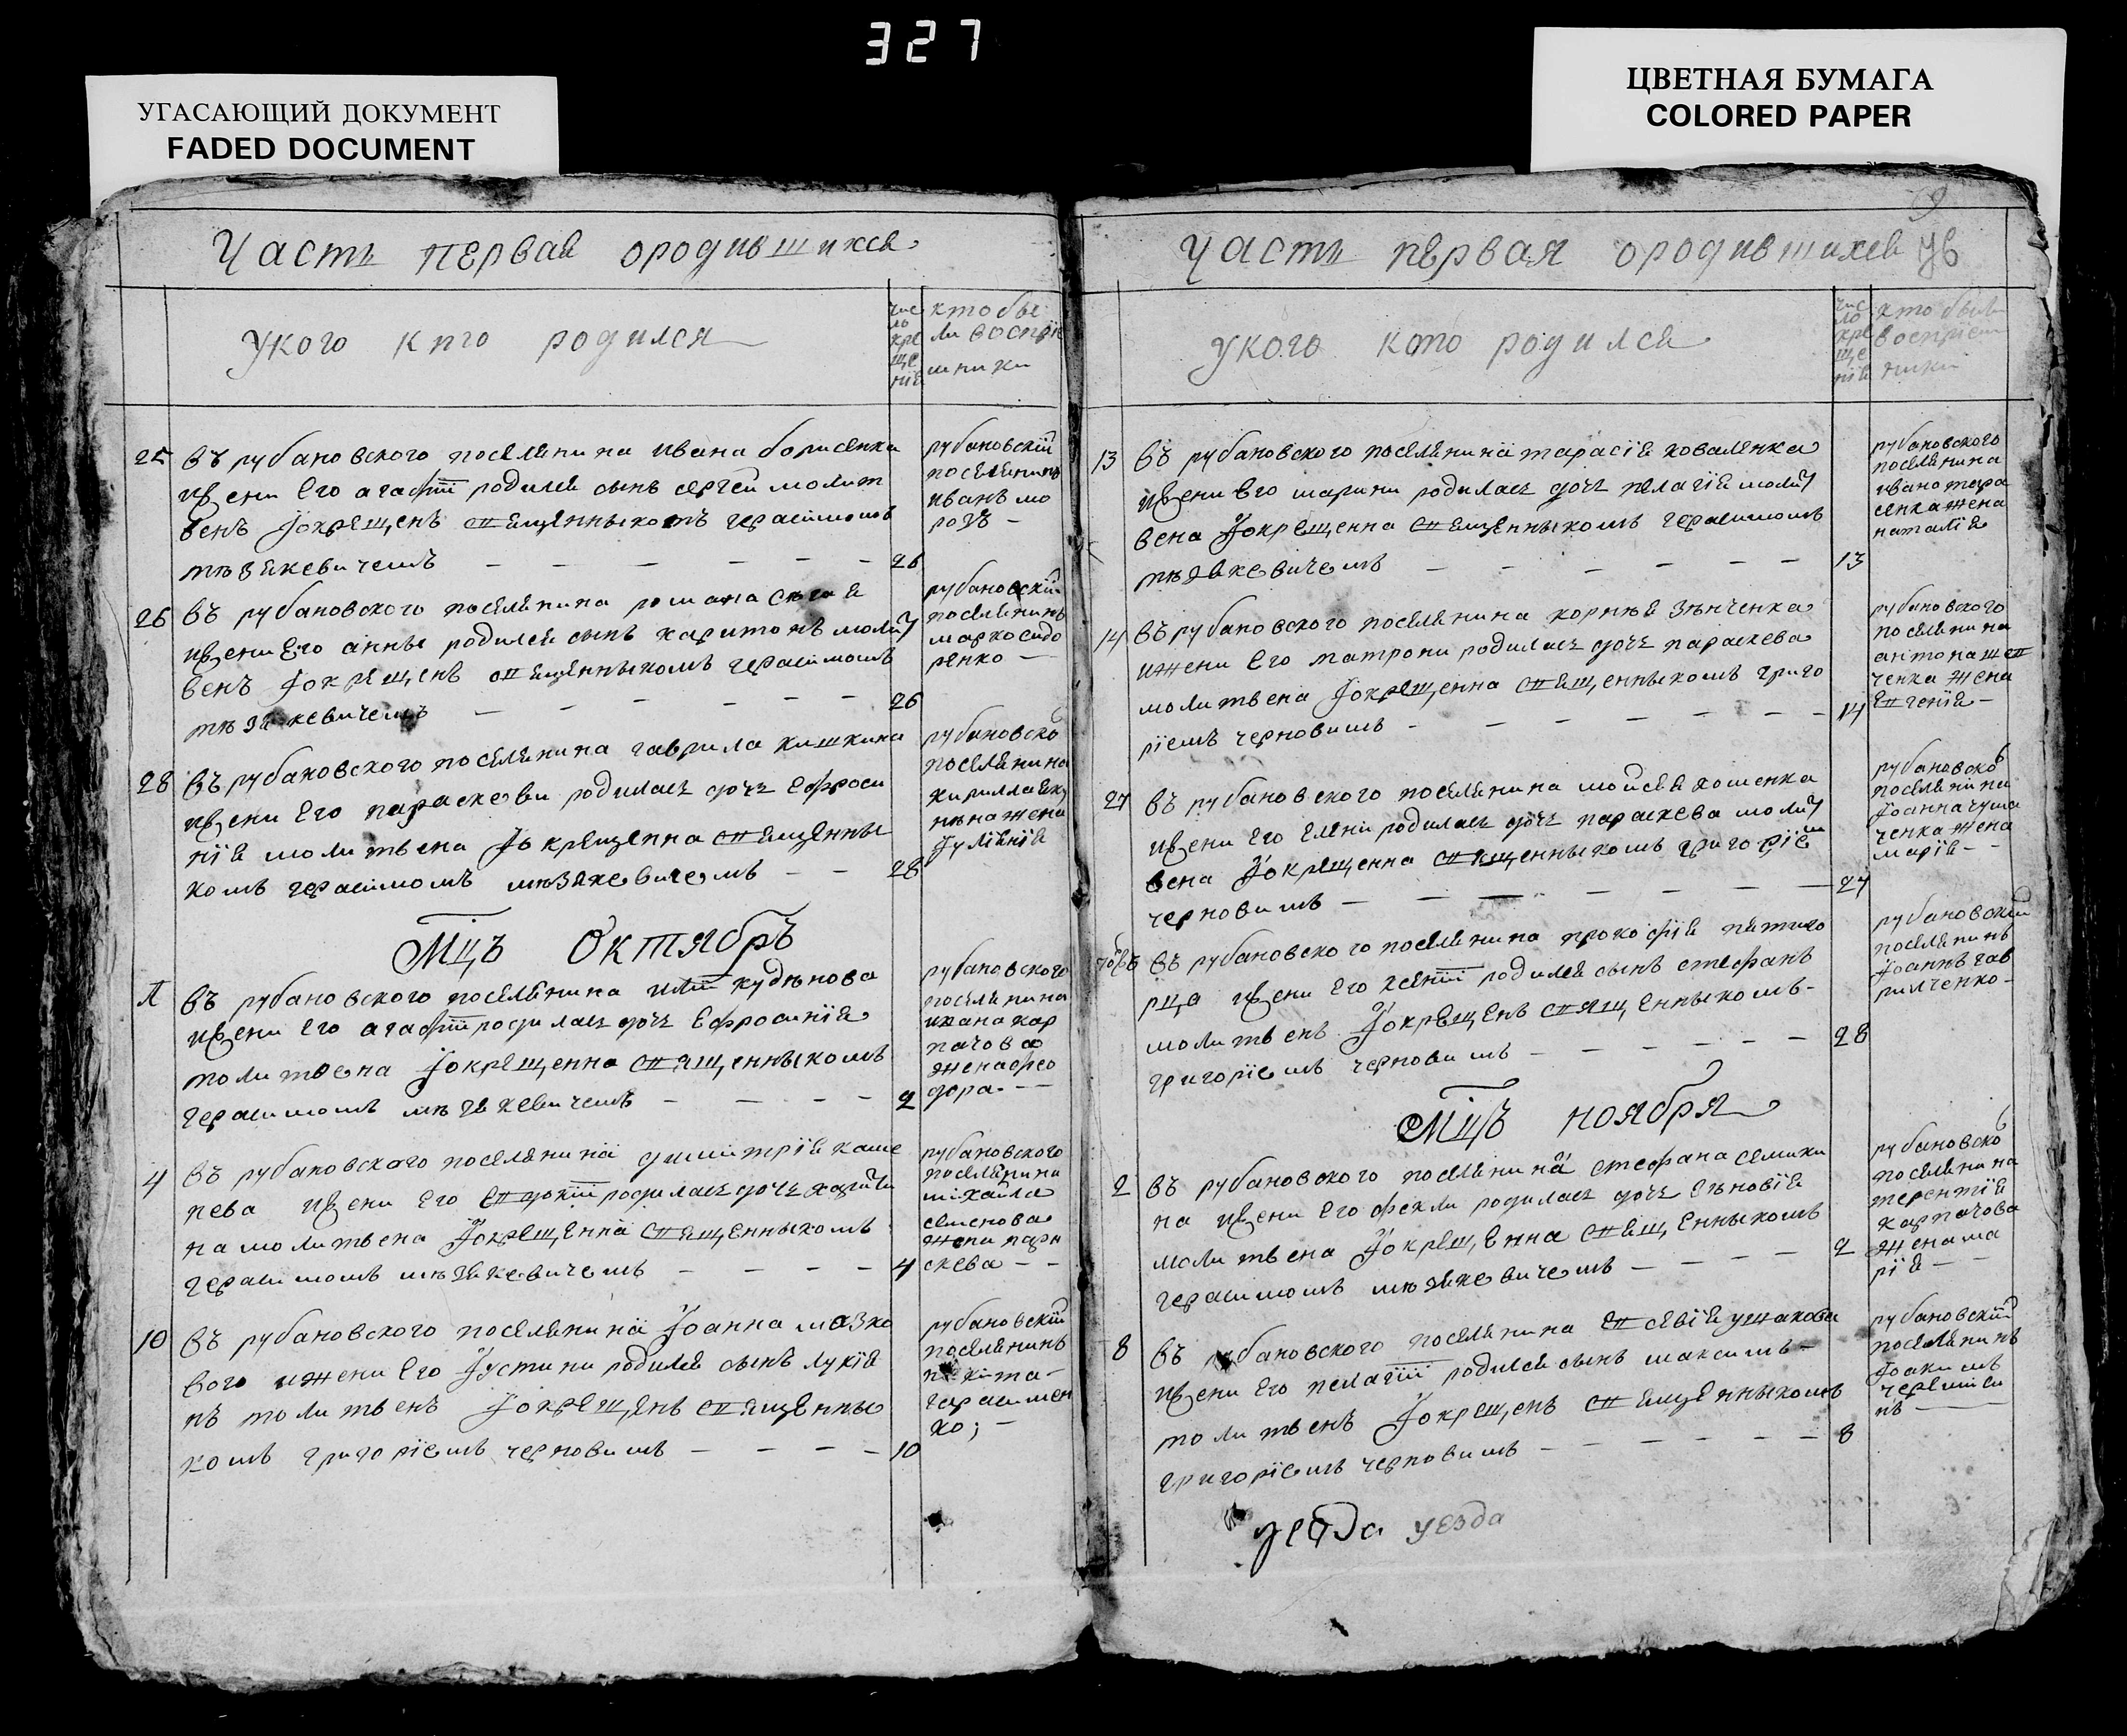 327
УГАСАЮЩИЙ ДОКУМЕНТ
FADED DOCUMENT
ЦВЕТНАЯ БУМАГА
COLORED PAPER
Часть первая ородившихся
укого кто родился
чис
ло
кре
ще
нія
кто бы
ли воспрі
мники
25 въ рубановского поселянина ивана борисенка
ижени его агафіи родился сынъ сергей молит
венъ Јокрещенъ священникомъ герасимомъ
мѣзякевичемъ 26
рубановскій
поселянинъ
иванъ мо
розъ
26 въ рубановского поселянина романа
ижени его анны родился сынъ харитонъ моли
венъ Јокрещенъ священникомъ герасимомъ
мѣзякевичемъ 26
рубановскій
поселянинъ
марко сидо
ренко
28 въ рубановского поселянина гаврила кишкина
ижени его параскеви родилась дочь ефроси
нія молитвена Јокрещенна священны
комъ герасимомъ мѣзякевичемъ 28
рубановско
поселянина
кирилла
жена
Јуліянія
Мцъ Октябръ
въ рубановского поселянина иліи кудѣнова
ижени его агафіи родилась дочь ефросинія
молитвена Јокрещенна священныкомъ
герасимомъ мѣзякевичемъ 2
рубановского
поселянина
ивана кар
пачова
жена фео
дора
4 въ рубановского поселянина димитрія каше
нева ижени его евдокіи родилась дочь
на молитвена Јокрещенна священныкомъ
герасимомъ мѣзякевичемъ 4
рубановского
поселянина
михайла
семенова
жена пара
скева
10 въ рубановского поселянина Јоанна мазко
вого ижени его Јустини родился сынъ лукія
нъ молитвенъ Јокрещенъ священны
комъ григоріемъ черновимъ 10
рубановскій
поселянинъ
никита
герасимен
ко;
9
Часть первая ородившихся
укого кото родился
чис
ло
кре
ще
нія
кто были
воспріем
ники
13 въ рубановского поселянина тарасія коваленка
ижени его марини родилась дочь пелагія моли
вена Јокрещенна священныкомъ герасимомъ
мѣзякевичемъ 13
рубановского
поселянина
ивана тара
сенка жена
наталія
14 въ рубановского поселянина корнѣя зѣнченка
ижени его матрони родилась дочь параскева
молитвена Јокрещенна священныкомъ григо
ріемъ черновимъ 14
рубановского
поселянина
антона шев
ченка жена
евгенія
27 въ рубановского поселянина мойсея кошенка
ижени его елени родилась дочь параскева моли
вена Јокрещенна священныкомъ григоріем
черновимъ 27
рубановско
поселянина
Јоанна чума
ченка жена
марія
въ рубановского поселянина прокофія пятиго
рца ижени его ксеніи родился сынъ стефанъ
молитвенъ Јокрещенъ священныкомъ
григоріемъ черновимъ 28
рубановскій
поселянинъ
Јоаннъ гав
рилченко
Мцъ ноября
2 въ рубановского поселянина стефана семики
на ижени его фекли родилась дочь зѣновія
молитвена Јокрещенна священныкомъ
герасимомъ мѣзякевичемъ 2
рубановско
поселянина
терентія
карпачова
жена ма
рія
8 въ рубановского поселянина евсевія ушакова
ижени его пелагіи родился сынъ максимъ
молитвенъ Јокрещенъ священныкомъ
григоріемъ черновимъ 8
рубановскій
поселянинъ
Јоакимъ
черемиси
нъ
уезда уезда